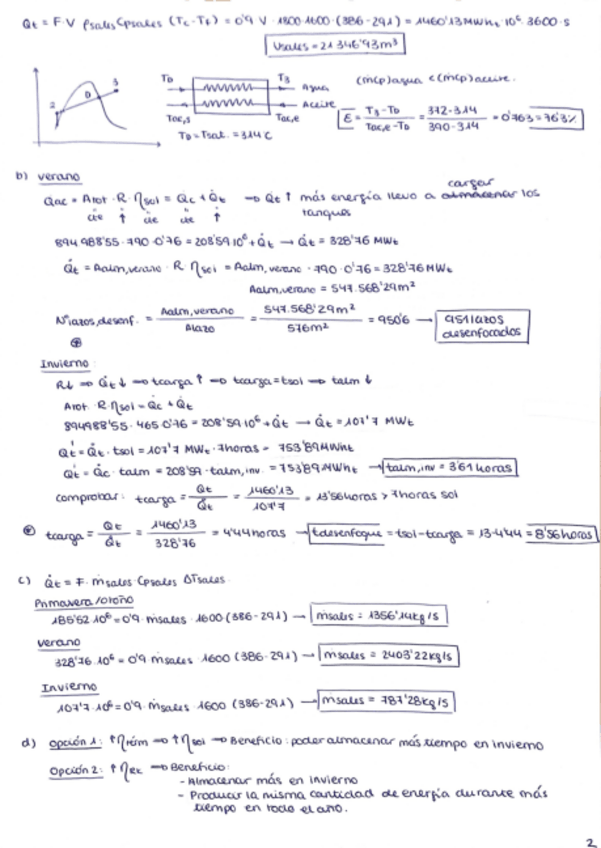 Qt = F·V ρsales Cpsales (Tc-Tf) = 0'9 V·1800·1600·(386-291) = 1460'13 MWht·10⁶·3600·s
Vsales = 21346'93 m³
T0 T3 Agua
Aceite
Tac,s Tac,e
T0 = Tsat. = 314 C
(ṁcp)agua < (ṁcp)aceite.
E = T3-T0 / Tac,e-T0 = 372-314 / 390-314 = 0'763 = 76'3%
2 0 3
b) verano
Q̇ac = Atot·R·ηsol = Q̇c + Q̇t → Q̇t ↑ más energía llevo a cargar almacenar los tanques
cte ↑ cte cte ↑
894988'55·790·0'76 = 208'59 10⁶ + Q̇t → Q̇t = 328'76 MWt
Q̇t = Aalm,verano·R·ηsol = Aalm,verano·790·0'76 = 328'76 MWt
Aalm,verano = 547.568'29 m²
Nºlazos,desenf. = Aalm,verano / Alazo = 547.568'29 m² / 576 m² = 950'6 → 951 lazos desenfocados
⊕
Invierno:
R↓ → Q̇t ↓ → tcarga ↑ → tcarga = tsol → talm ↓
Atot·R·ηsol = Q̇c + Q̇t
894988'55·465·0'76 = 208'59 10⁶ + Q̇t → Q̇t = 107'7 MWt
Qt' = Q̇t·tsol = 107'7 MWt·7horas = 753'89 MWht
Qt' = Q̇c·talm = 208'59·talm,inv = 753'89 MWht → talm,inv = 3'61 horas
comprobar: tcarga = Qt / Q̇t = 1460'13 / 107'7 = 13'56 horas > 7horas sol
⊕ tcarga = Qt / Q̇t = 1460'13 / 328'76 = 4'44 horas → tdesenfoque = tsol - tcarga = 13-4'44 = 8'56 horas
c) Q̇t = F·ṁsales·Cpsales ΔTsales.
Primavera/otoño
185'52·10⁶ = 0'9·ṁsales·1600 (386-291) → ṁsales = 1356'14 kg/s
verano
328'76·10⁶ = 0'9 ṁsales 1600 (386-291) → ṁsales = 2403'22 kg/s
Invierno
107'7·10⁶ = 0'9·ṁsales·1600 (386-291) → ṁsales = 787'28 kg/s
d) opción 1: ↑ηtérm → ↑ηsol → Beneficio: poder almacenar más tiempo en invierno
Opción 2: ↑ηel → Beneficio:
- Almacenar más en invierno
- Producir la misma cantidad de energía durante más tiempo en todo el año.
2